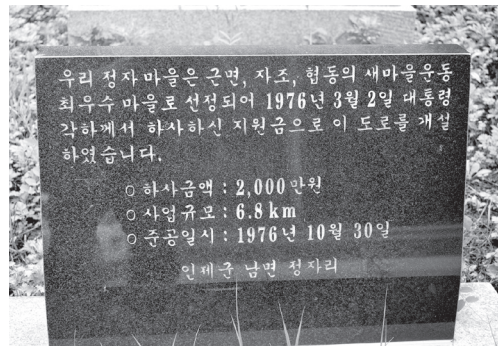 우리 정자마을은 근면, 자조, 협동의 새마을운동
최우수 마을로 선정되어 1976년 3월 2일 대통령
각하께서 하사하신 지원금으로 이 도로를 개설
하였습니다.
○ 하사금액 : 2,000만원
○ 사업규모 : 6.8 km
○ 준공일시 : 1976년 10월 30일
인제군 남면 정자리